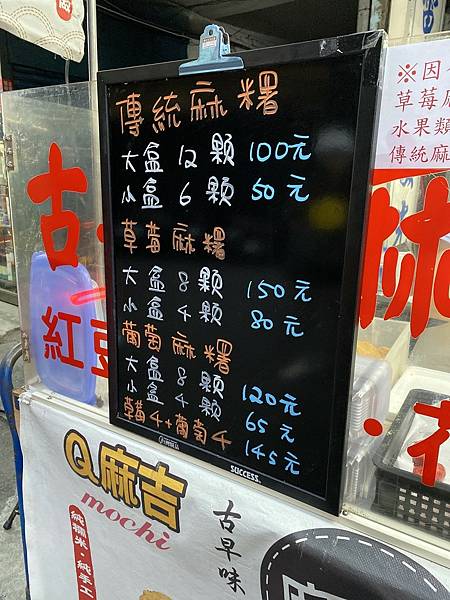 傳統麻糬
大盒 12 顆 100元
小盒 6 顆 50 元
草莓麻糬
大盒 8 顆 150元
小盒 4 顆 80元
葡萄麻糬
大盒 8 顆 120元
小盒 4 顆 65元
草莓4+葡萄4 145元
SUCCESS
※因
草莓
水果類
傳統麻
古
紅豆
Q麻吉
mochi
純糯米·純手工
古早味